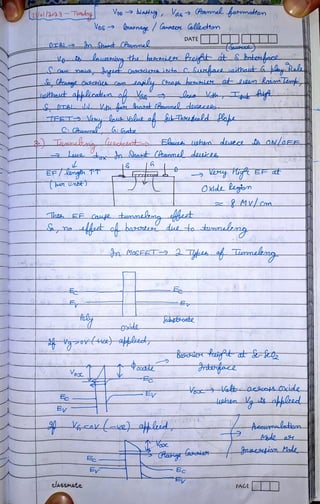 31/01/2023 - Tuesday
V_DS →
V_GS → Channel formation
V_DS → / Carrier Collection
DATE
DIBL → In Short Channel (current)
V_D is lowering the barrier height at S Interface
S can now inject carriers into C Surface without G play Role
So, Charge carrier can easily cross barrier at even Room Temp,
without application of V_GS → Less V_th, I_sub high
So, DIBL ↓↓ V_th for Short Channel devices.
TFET → Very less value of Sub-Threshold Slope
C: Channel, G: Gate
Tunneling Current → Flows when device is ON/OFF
→ Low t_ox In Short Channel devices
EF / length ↑↑
(per Unit)
S G D
→ Very High EF at
Oxide Region
≈ 8 MV/cm
This EF cause tunneling effect
So, no effect of barrier due to tunneling
In MOSFET → 2 Types of Tunneling
E_C E_C
E_V E_V
Poly Oxide Substrate
If V_G>0V (+ve) applied,
Barrier height at Si-SiO2
Interface
V_ox ϕ_oxide
E_C
E_C E_V
E_V
V_ox → Volt. across oxide
when V_G is applied
If V_G<0V (-ve) applied,
V_ox
→ Charge Carrier
E_C
E_V E_C
E_V
Accumulation
Mode or
Inversion Mode
classmate
PAGE